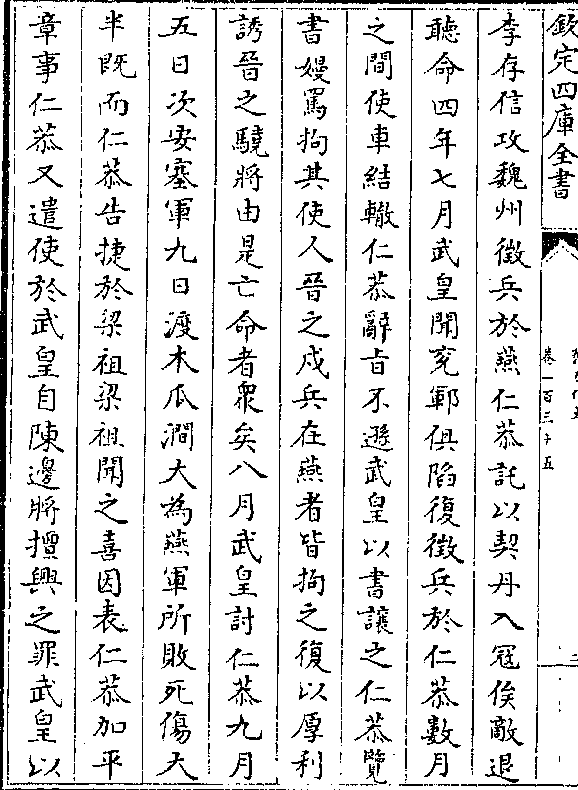 欽定四庫全書
卷一百三十五
李存信攻魏州徵兵於燕仁恭託以契丹入寇俟敵退
聽命四年七月武皇聞兗鄆俱陷復徵兵於仁恭數月
之間使車結轍仁恭辭旨不遜武皇以書讓之仁恭覽
書嫚罵拘其使人晉之戍兵在燕者皆拘之復以厚利
誘晉之驍將由是亡命者衆矣八月武皇討仁恭九月
五日次安塞軍九日渡木瓜澗大為燕軍所敗死傷大
半既而仁恭告捷於梁祖梁祖聞之喜因表仁恭加平
章事仁恭又遣使於武皇自陳邊將擅興之罪武皇以